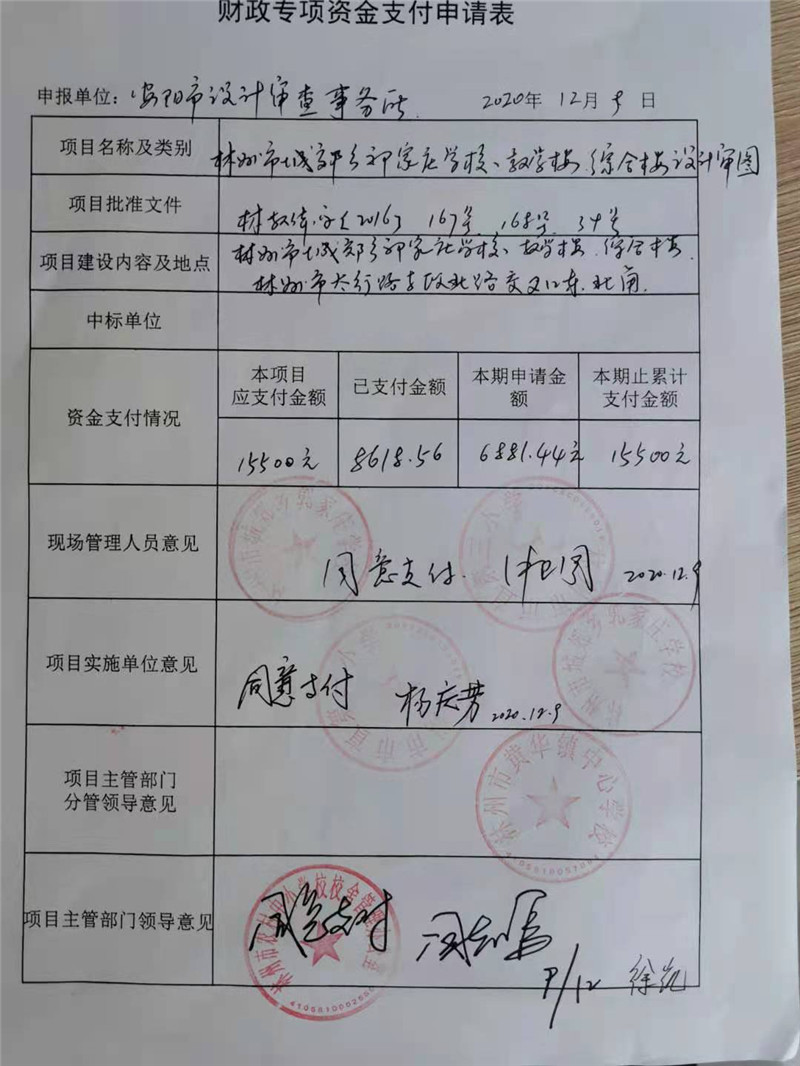 财政专项资金支付申请表
申报单位：安阳市设计审查事务所 2020年 12月 9 日
项目名称及类别 林州市城郊乡郭家庄学校、教学楼、综合楼设计审图
项目批准文件 林教 字（2016） 167号、168号、34号
项目建设内容及地点 林州市城郊乡郭家庄学校、教学楼、综合楼、
林州市太行路与 北路交叉口东北角.
中标单位
资金支付情况
本项目 应支付金额
已支付金额
本期申请金额
本期止累计 支付金额
15500元 8618.56 6881.44元 15500元
现场管理人员意见 同意支付. 2020.12.9
项目实施单位意见 同意支付 杨庆芳 2020.12.9
项目主管部门
分管领导意见
林州市黄华镇中心学校
项目主管部门领导意见 同意支付
9/12 徐凯